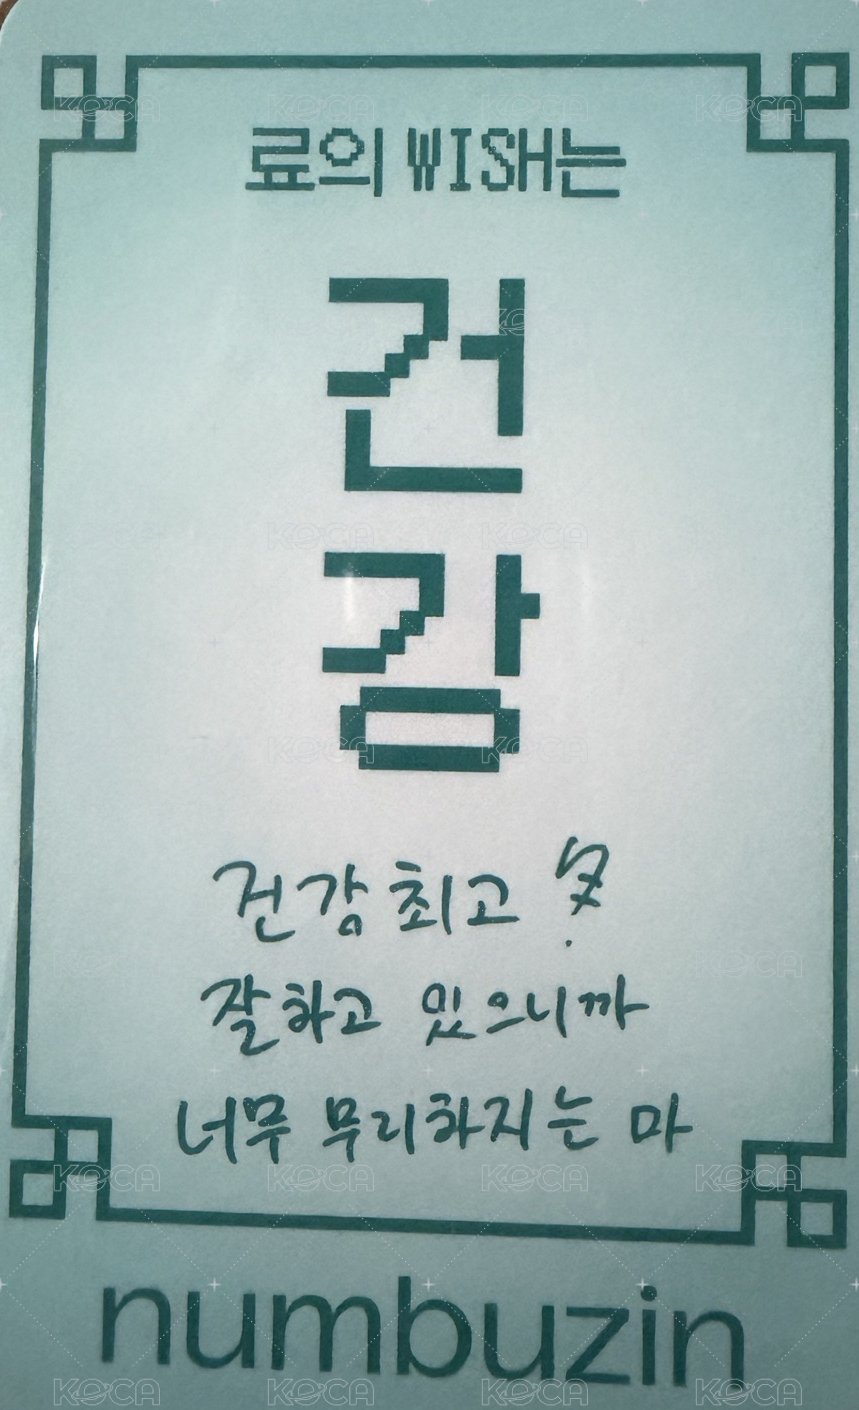 료의 WISH는
건
강
건강최고
잘하고 있으니까
너무 무리하지는 마
numbuzin
KOCA